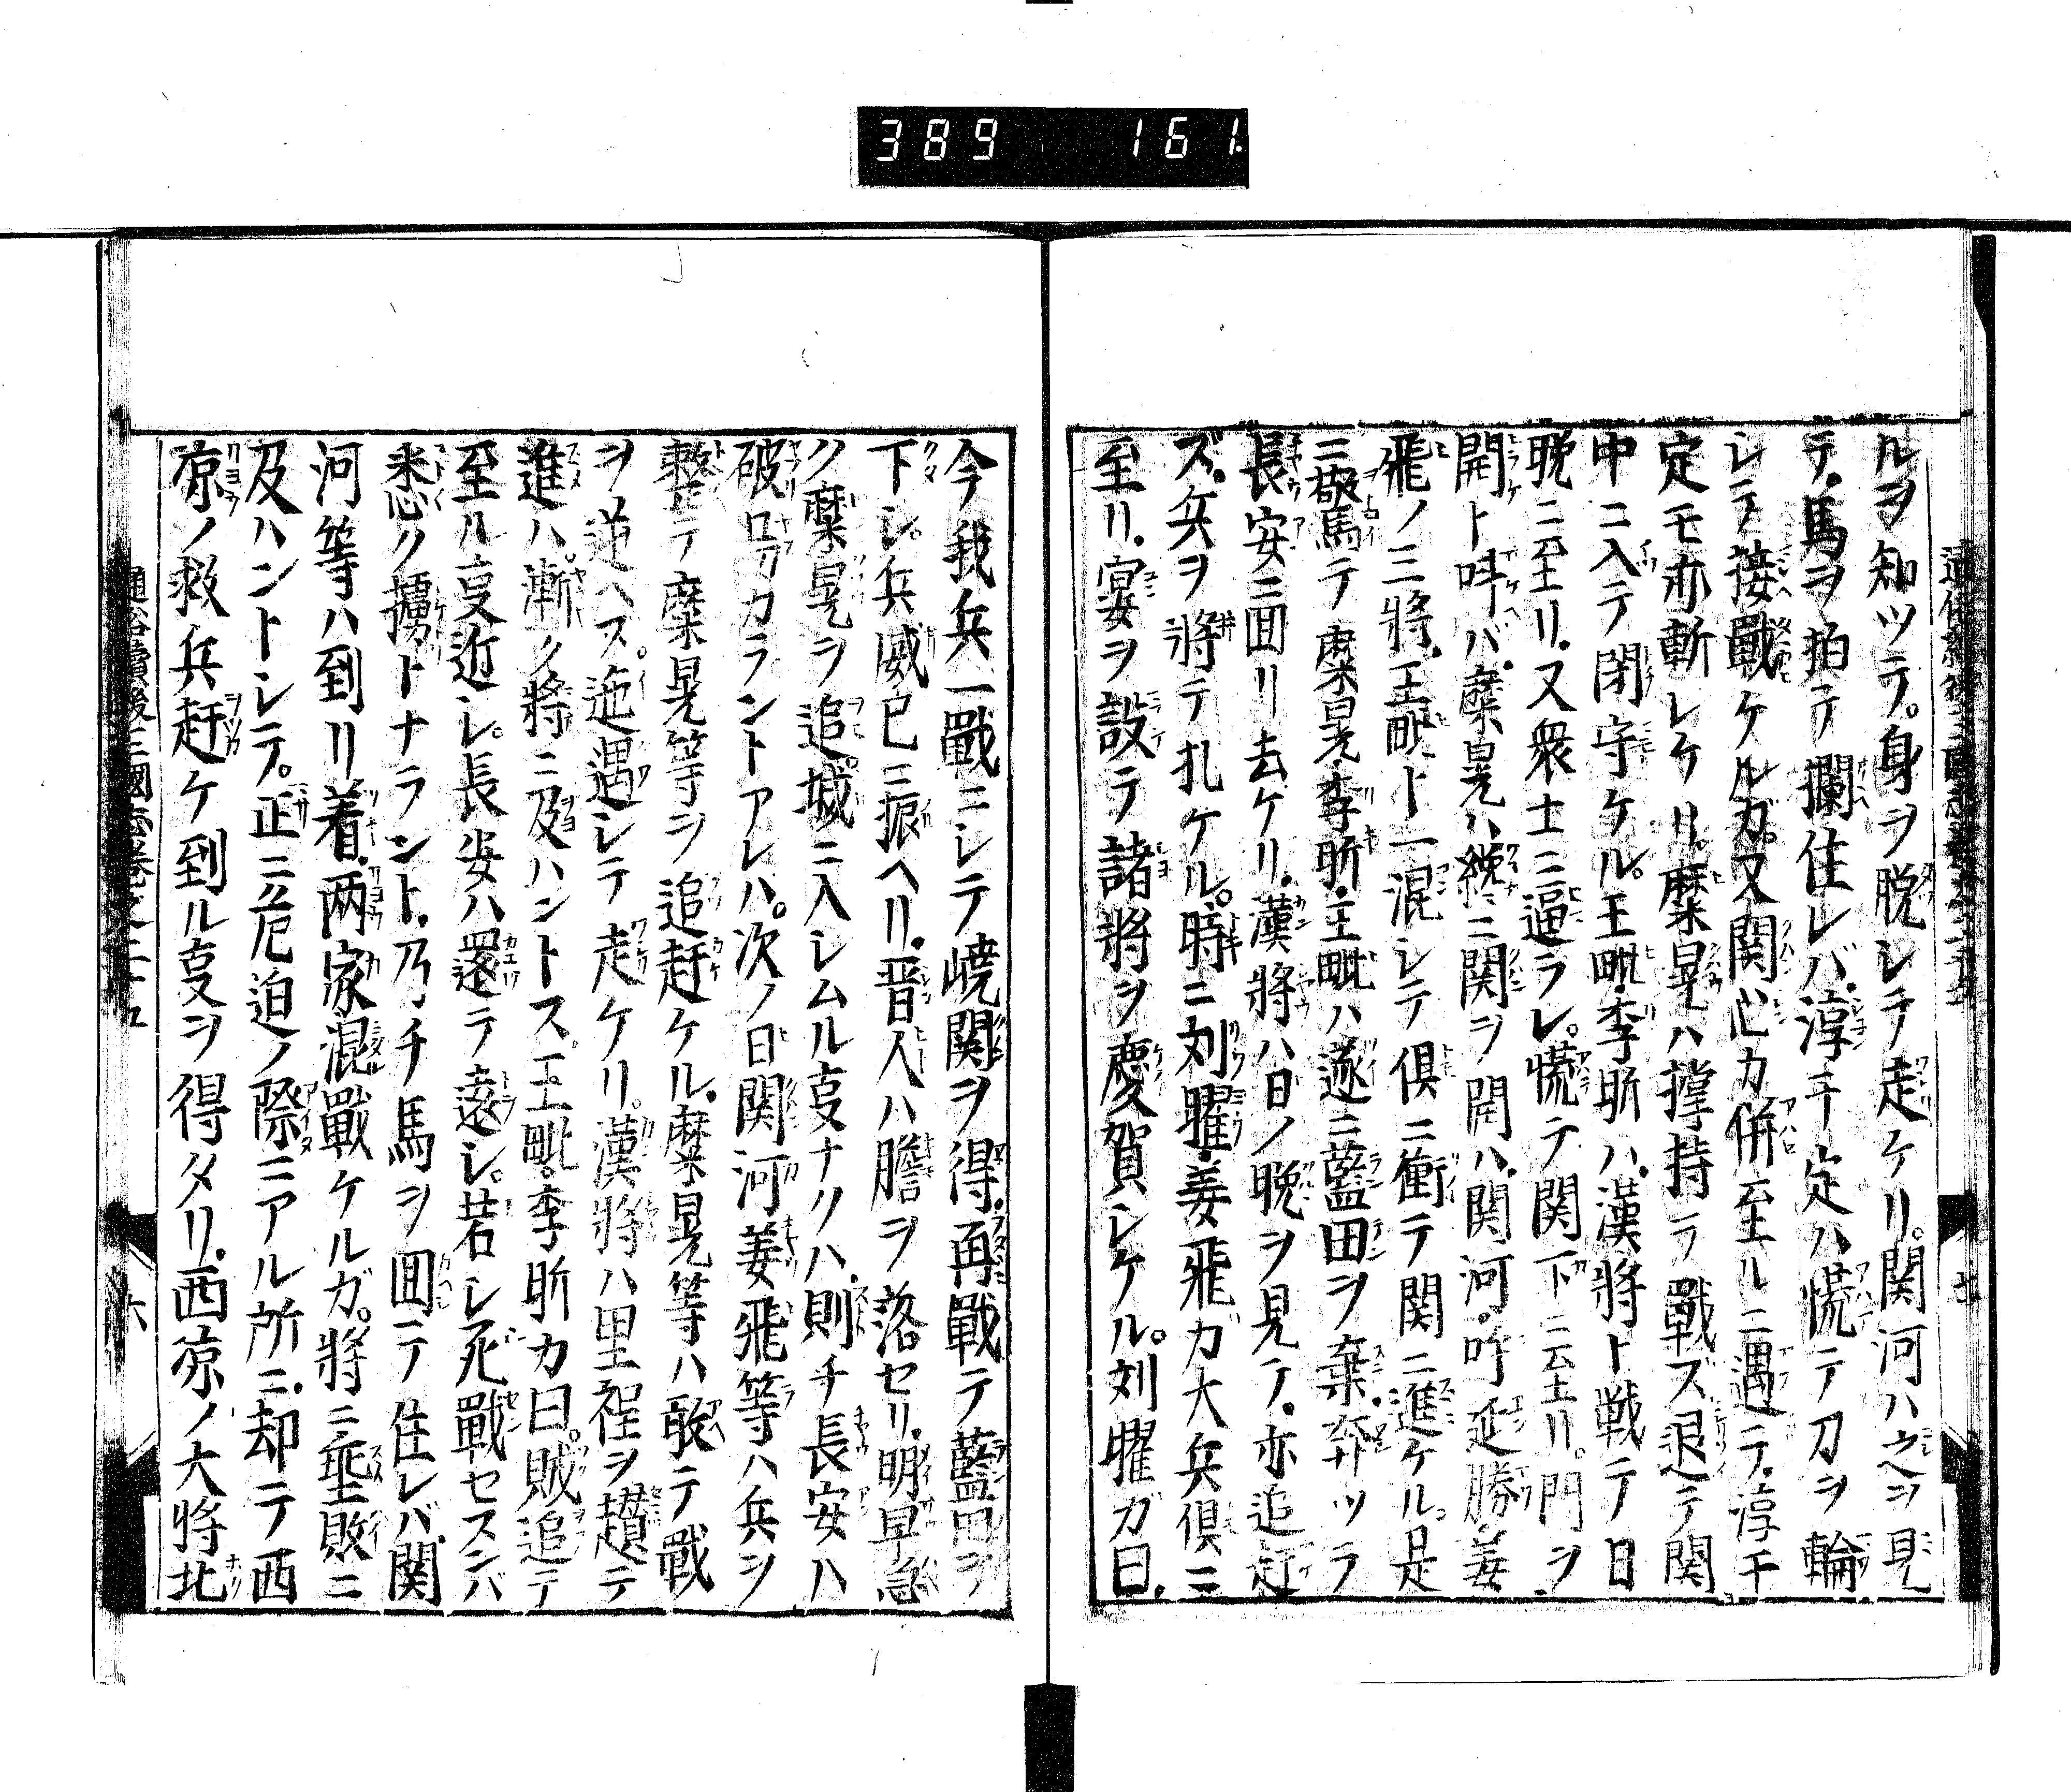 389 161.
ルヲ知ツテ。身ヲ脱レテ走ケリ。関河ハ之ヲ見
テ。馬ヲ拍テ攔住レバ。淳于定ハ慌テ刀ヲ輪
シテ接戰ケルガ。又関心カ併至ルニ遇テ。淳于
定モ亦斬レケリ。麋晃ハ撑持テ戰ズ退テ関
中ニ入テ閉守ケル。王毗・李昕ハ。漢將ト戦テ日
晩ニ至リ。又衆士ニ逼ラレ。慌テ関下ニ至リ。門ヲ
開ケト呌バ。麋晃ハ纔ニ関ヲ開ハ。関河・呼延勝・姜
飛ノ三將。王毗ト一混レテ倶ニ衝テ関ニ進ケル。是
ニ驚テ麋晃・李昕・王毗ハ遂ニ藍田ヲ棄弃ツテ
長安ニ囬リ去ケリ。漢將ハ日ノ晩ヲ見テ。亦追赶
ズ。兵ヲ將テ札ケル。時ニ刘曜・姜飛ガ大兵倶ニ
至リ。宴ヲ設テ諸將ヲ慶賀レケル。刘曜ガ曰。
今我兵一戰ニレテ嶢関ヲ得。再戰テ藍田ヲ
下シ。兵威已ニ振ヘリ。晋人ハ膽ヲ落セリ。明早急
ク麋晃ヲ追。城ニ入レムル叓ナクハ。則チ長安ハ
破ロカラントアレハ。次ノ日関河姜飛等ハ兵ヲ
整テ麋晃等ヲ追赶ケル。麋晃等ハ敢テ戰
ヲ逆ヘス。迤邐レテ走ケリ。漢將ハ里程ヲ趲テ
進ハ。漸ク將ニ及ハントス。王毗・李昕カ曰。賊追テ
至ル叓近シ。長安ハ還テ遠シ。若レ死戰セスンバ
悉ク擄トナラント。乃チ馬ヲ囬テ住レバ。関
河等ハ到リ着。两家混戰ケルガ。將ニ埀敗ニ
及ハントレテ。正ニ危迫ノ際ニアル所ニ。却テ西
凉ノ救兵赶ケ到ル叓ヲ得タリ。西凉ノ大将北
通俗續後三國志巻之二十五
六